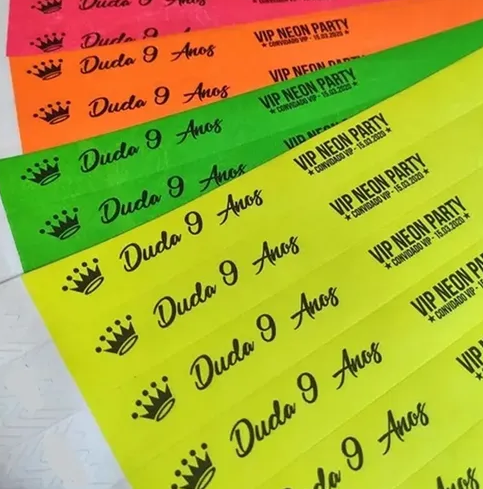 Duda 9 Anos
Duda 9 Anos VIP NEON PARTY
★ CONVIDADO VIP - 15.03.2020
Duda 9 Anos VIP NEON PARTY
Duda 9 Anos VIP NEON PARTY
★ CONVIDADO VIP - 15.03.2020
Duda 9 Anos VIP NEON
Duda 9 Anos VIP NEON PARTY
★ CONVIDADO VIP - 15.03.2020
Duda 9 Anos VIP NEON PARTY
★ CONVIDADO VIP - 15.03.2020
Duda 9 Anos VIP NEON PARTY
★ CONVIDADO VIP - 15.03.2020
Duda 9 Anos VIP NEON PARTY
★ CONVIDADO VIP - 1
9 Anos VIP